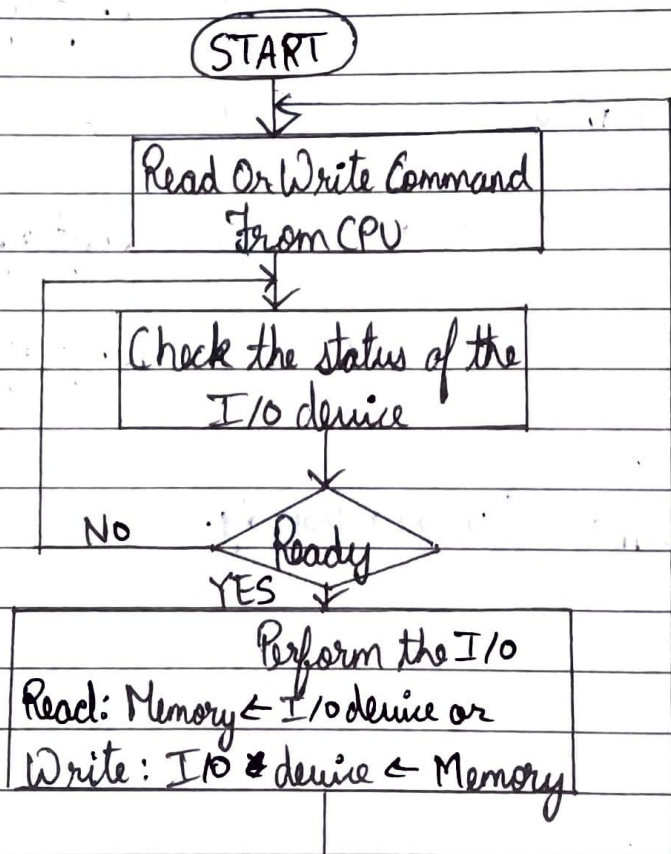 START
Read Or Write Command
From CPU
Check the status of the
I/O device
Ready
NO
YES
Perform the I/O
Read: Memory ← I/O device or
Write: I/O device ← Memory